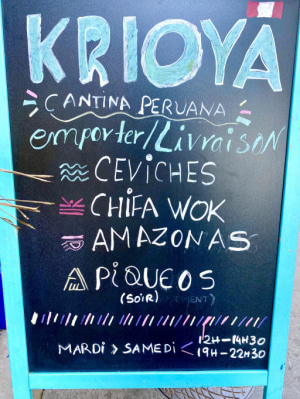 KRIOYA
CANTINA PERUANA
emporter/Livraison
CEVICHES
CHIFA WOK
AMAZONAS
PIQUEOS
(SOIR)
MARDI > SAMEDI < 12H-14H30
19H-22H30